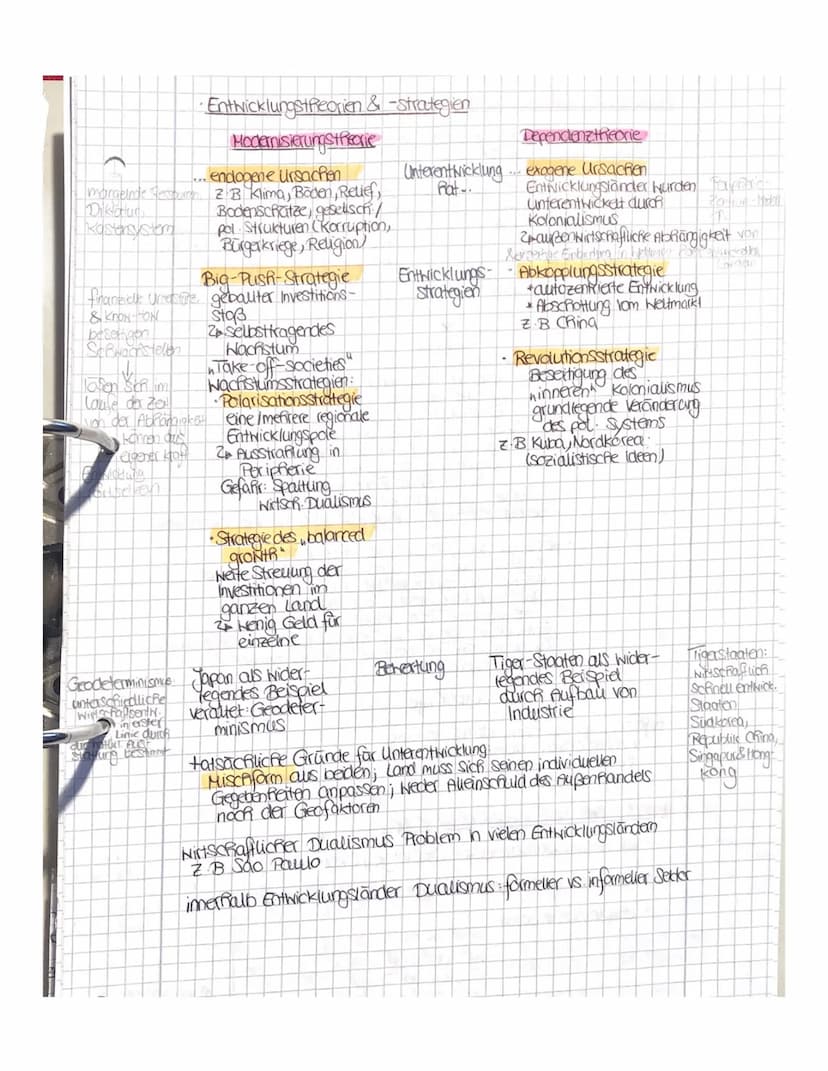 · Entwicklungstheorien & -strategien
Modernisierungstheorie
Dependenztheorie
... endogene Ursachen
z.B Klima, Böden, Relief,
Bodenschätze, gesellsch./
pol. Strukturen (Korruption,
Bürgerkriege, Religion)
Unterentwicklung
hat...
... exogene Ursachen
Entwicklungsländer wurden
unterentwickelt durch
Kolonialismus
↳ außenwirtschaftliche Abhängigkeit von
mangelnde
Diktatur,
Kastensystem
Big-Push-Strategie
geballter Investitions-
stoß
↳ selbsttragendes
Wachstum
"Take-off-societies"
Wachstumsstrategien:
· Polarisationsstrategie
eine/mehrere regionale
Entwicklungspole
↳ Ausstrahlung in
Peripherie
Gefahr: Spaltung
wirtsch. Dualismus
· Strategie des „balanced
growth"
weite Streuung der
Investitionen im
ganzen Land
↳ wenig Geld für
einzelne
finanzielle
& know-how
beseitigen
Schwachstellen
↓
lösen sich im
Laufe der Zeit
von der Abhängigkeit
können aus
eigener Kraft
Entwicklungs-
strategien
· Abkopplungsstrategie
* autozentrierte Entwicklung
* Abschottung vom Weltmarkt
z.B China
· Revolutionsstrategie
Beseitigung des
„inneren" Kolonialismus
grundlegende Veränderung
des pol. Systems
z.B Kuba, Nordkorea
(sozialistische Ideen)
Geodeterminismus
unterschiedliche
in erster
Linie durch
Japan als wider-
legendes Beispiel
veraltet: Geodeter-
minismus
Bewertung
Tiger-Staaten als wider-
legendes Beispiel
durch Aufbau von
Industrie
Tigerstaaten:
wirtschaftlich
schnell entwick.
Staaten
Südkorea,
Republik China,
Singapur & Hong-
kong
tatsächliche Gründe für Unterentwicklung:
Mischform aus beiden; Land muss sich seinen individuellen
Gegebenheiten anpassen; weder Alleinschuld des Außenhandels
noch der Geofaktoren
wirtschaftlicher Dualismus Problem in vielen Entwicklungsländern
z.B São Paulo
innerhalb Entwicklungsländer Dualismus: formeller vs. informeller Sektor